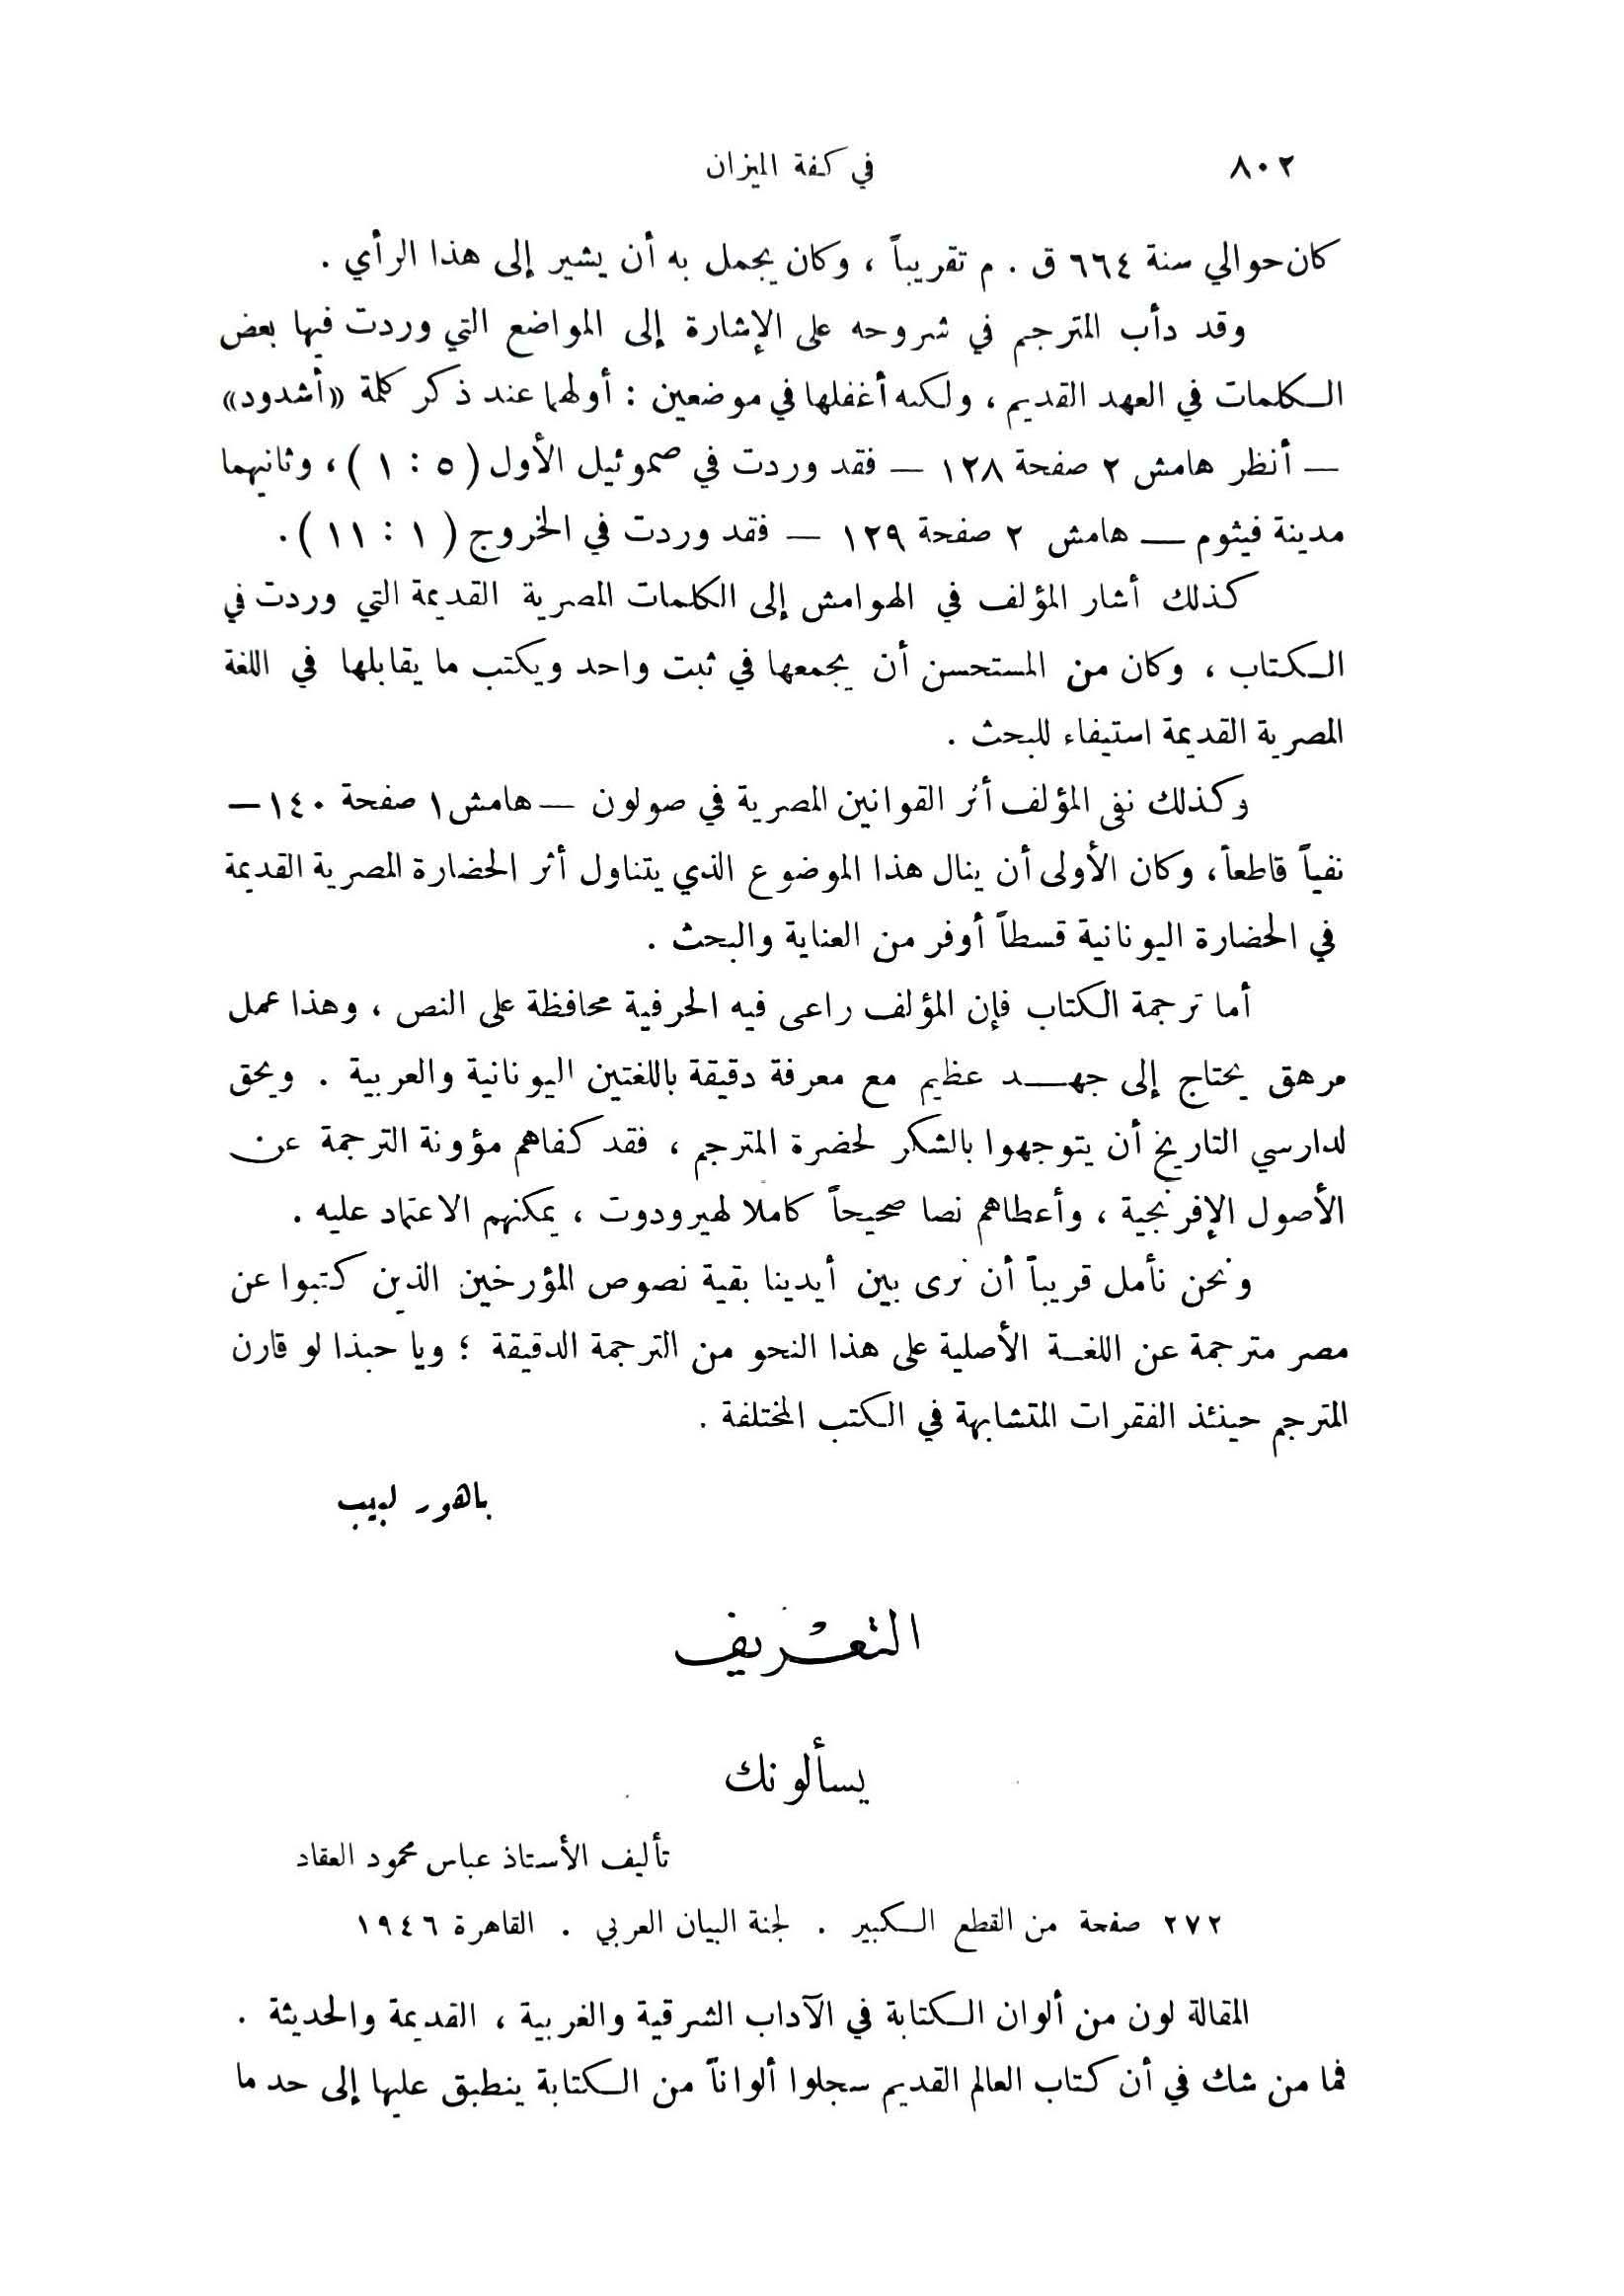 ٨٠٢
في كفة الميزان
كان حوالي سنة ٦٦٤ ق . م تقريباً ، وكان يجمل به أن يشير إلى هذا الرأي .
وقد دأب المترجم في شروحه على الإشارة إلى المواضع التي وردت فيها بعض
الكلمات في العهد القديم ، ولكنه أغفلها في موضعين : أولهما عند ذكر كلمة «أشدود»
— أنظر هامش ٢ صفحة ١٢٨ — فقد وردت في صموئيل الأول ( ٥ : ١ ) ، وثانيهما
مدينة فيثوم — هامش ٢ صفحة ١٢٩ — فقد وردت في الخروج ( ١ : ١١ ) .
كذلك أشار المؤلف في الهوامش إلى الكلمات المصرية القديمة التي وردت في
الكتاب ، وكان من المستحسن أن يجمعها في ثبت واحد ويكتب ما يقابلها في اللغة
المصرية القديمة استيفاء للبحث .
وكذلك نفى المؤلف أثر القوانين المصرية في صولون — هامش ١ صفحة ١٤٠ —
نفياً قاطعاً ، وكان الأولى أن ينال هذا الموضوع الذي يتناول أثر الحضارة المصرية القديمة
في الحضارة اليونانية قسطاً أوفر من العناية والبحث .
أما ترجمة الكتاب فإن المؤلف راعى فيه الحرفية محافظة على النص ، وهذا عمل
مرهق يحتاج إلى جهد عظيم مع معرفة دقيقة باللغتين اليونانية والعربية . ويحق
لدارسي التاريخ أن يتوجهوا بالشكر لحضرة المترجم ، فقد كفاهم مؤونة الترجمة عن
الأصول الإفرنجية ، وأعطاهم نصا صحيحاً كاملا لهيرودوت ، يمكنهم الاعتماد عليه .
ونحن نأمل قريباً أن نرى بين أيدينا بقية نصوص المؤرخين الذين كتبوا عن
مصر مترجمة عن اللغة الأصلية على هذا النحو من الترجمة الدقيقة ؛ ويا حبذا لو قارن
المترجم حينئذ الفقرات المتشابهة في الكتب المختلفة .
باهور لبيب
التعريف
يسألونك
تأليف الأستاذ عباس محمود العقاد
٢٧٢ صفحة من القطع الكبير . لجنة البيان العربي . القاهرة ١٩٤٦
المقالة لون من ألوان الكتابة في الآداب الشرقية والغربية ، القديمة والحديثة .
فما من شك في أن كتاب العالم القديم سجلوا ألواناً من الكتابة ينطبق عليها إلى حد ما